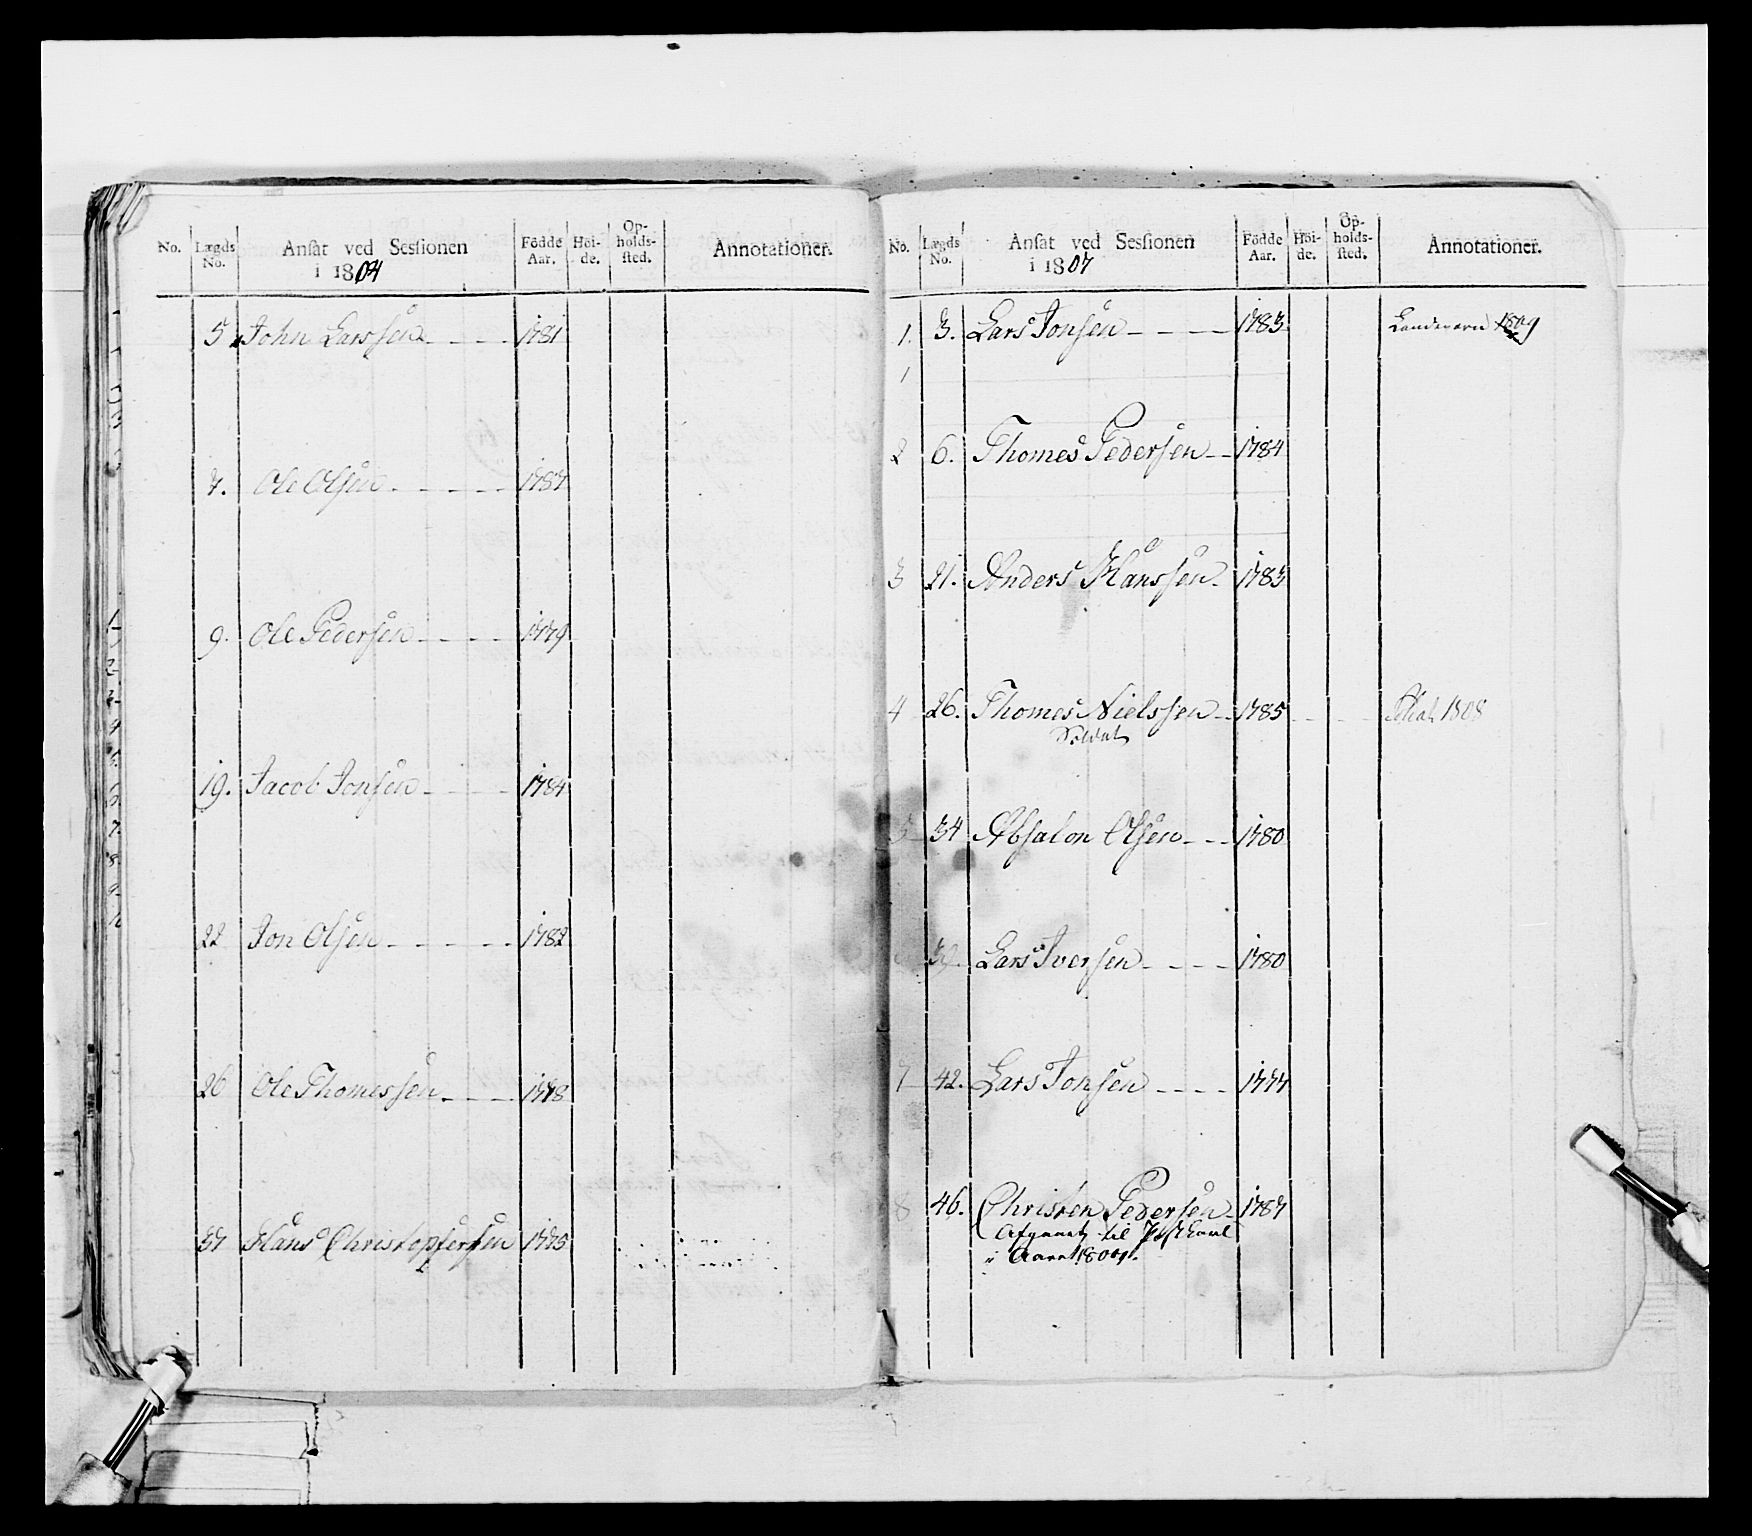 No. Lægds No. Ansat ved Sessionen i 1804 Födde Aar. Höide. Opholdssted. Annotationer.
5 John Larssen 1781
7. Ole Olsen 1787
9. Ole Pedersen 1779
19. Jacob Jonsen 1784
22 Jon Olsen 1782
26 Ole Thomessen 1778
37 Hans Christophersen 1775
No. Lægds No. Ansat ved Sessionen i 1807 Födde Aar. Höide. Opholdssted. Annotationer.
1. 3. Lars Jonsen 1783 Landevern 1809
1
2 6. Thomes Pedersen 1784
3 21. Anders Hanssen 1783
4 26. Thomes Nielssen 1785 1808
Soldat
5 34 Absalon Olsen 1780
39. Lars Iversen 1780
7 42. Lars Jonsen 1777
8 46. Christen Pedersen 1787
Afgaaet til
i Aaret